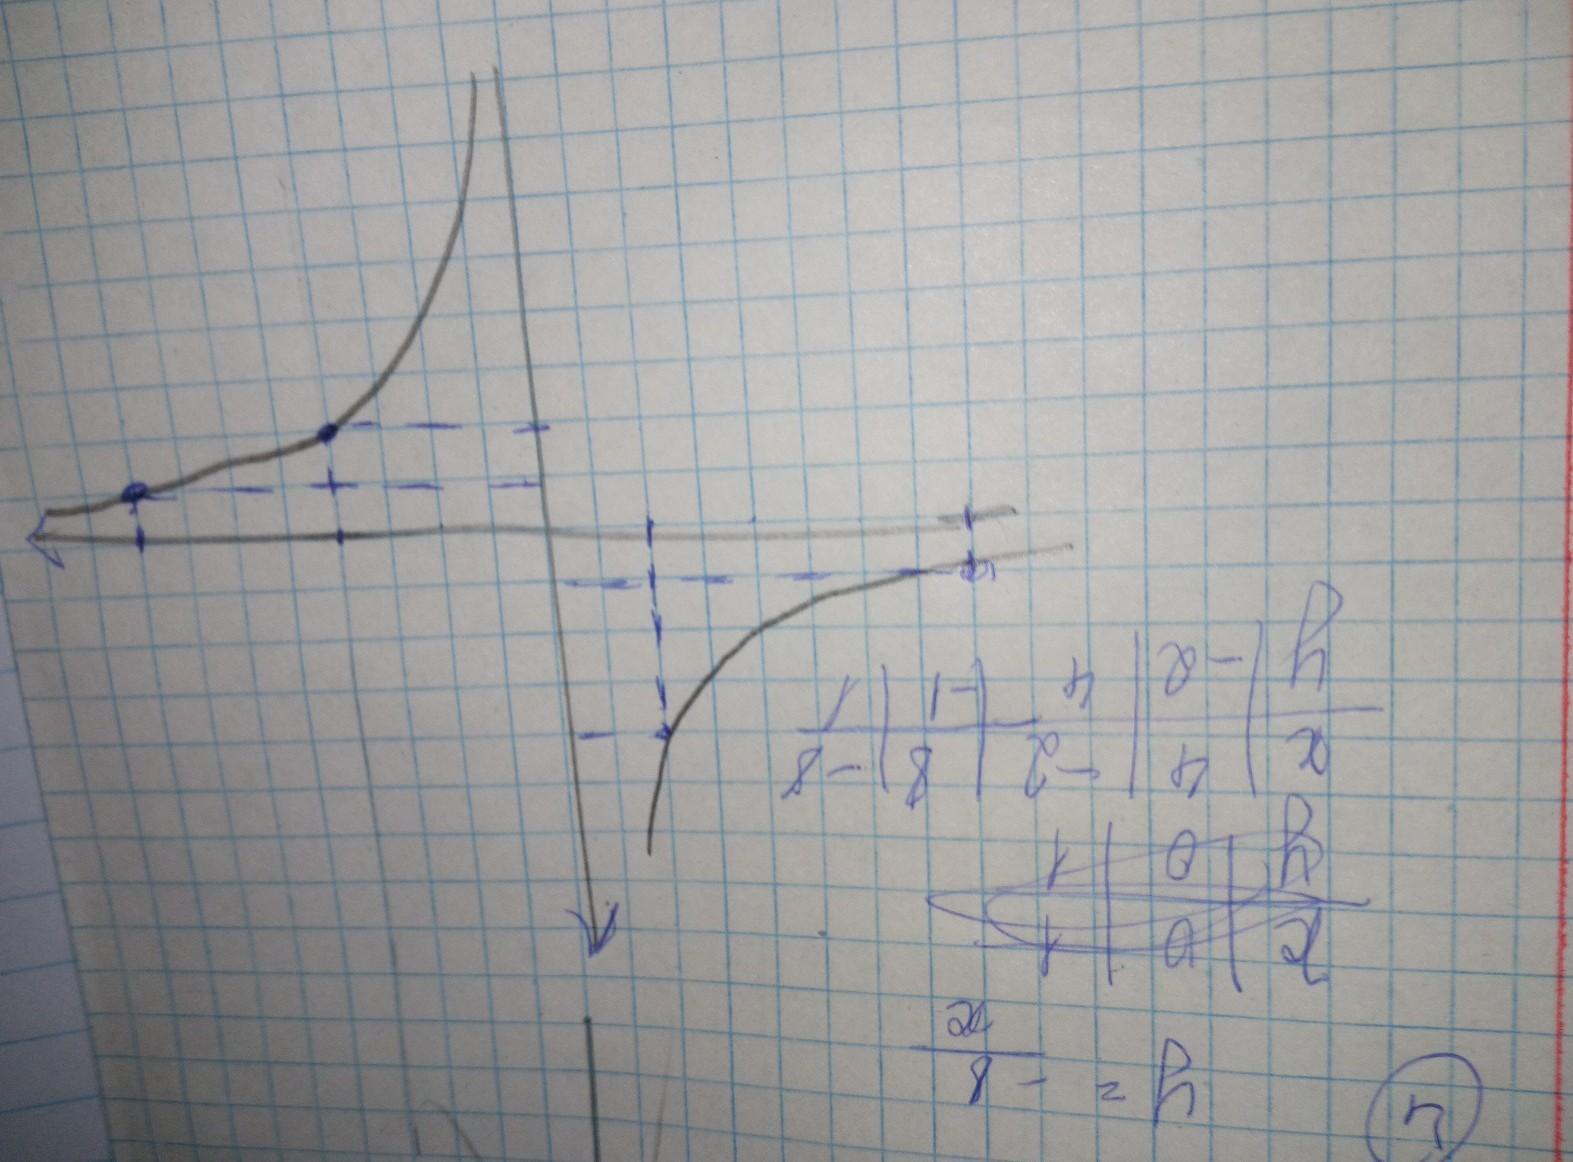 2
y = -8/x
x | 0 | 1
y | 0 | 1
x | 4 | -2 | 8 | -8
y | -2 | 4 | -1 | 1